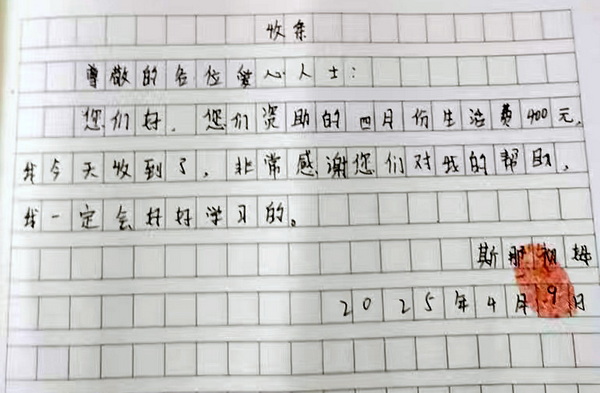 收条
尊敬的各位爱心人士：
您们好，您们资助的四月份生活费400元，
我今天收到了，非常感谢您们对我的帮助，
我一定会好好学习的。
斯那初姆
2025年4月9日